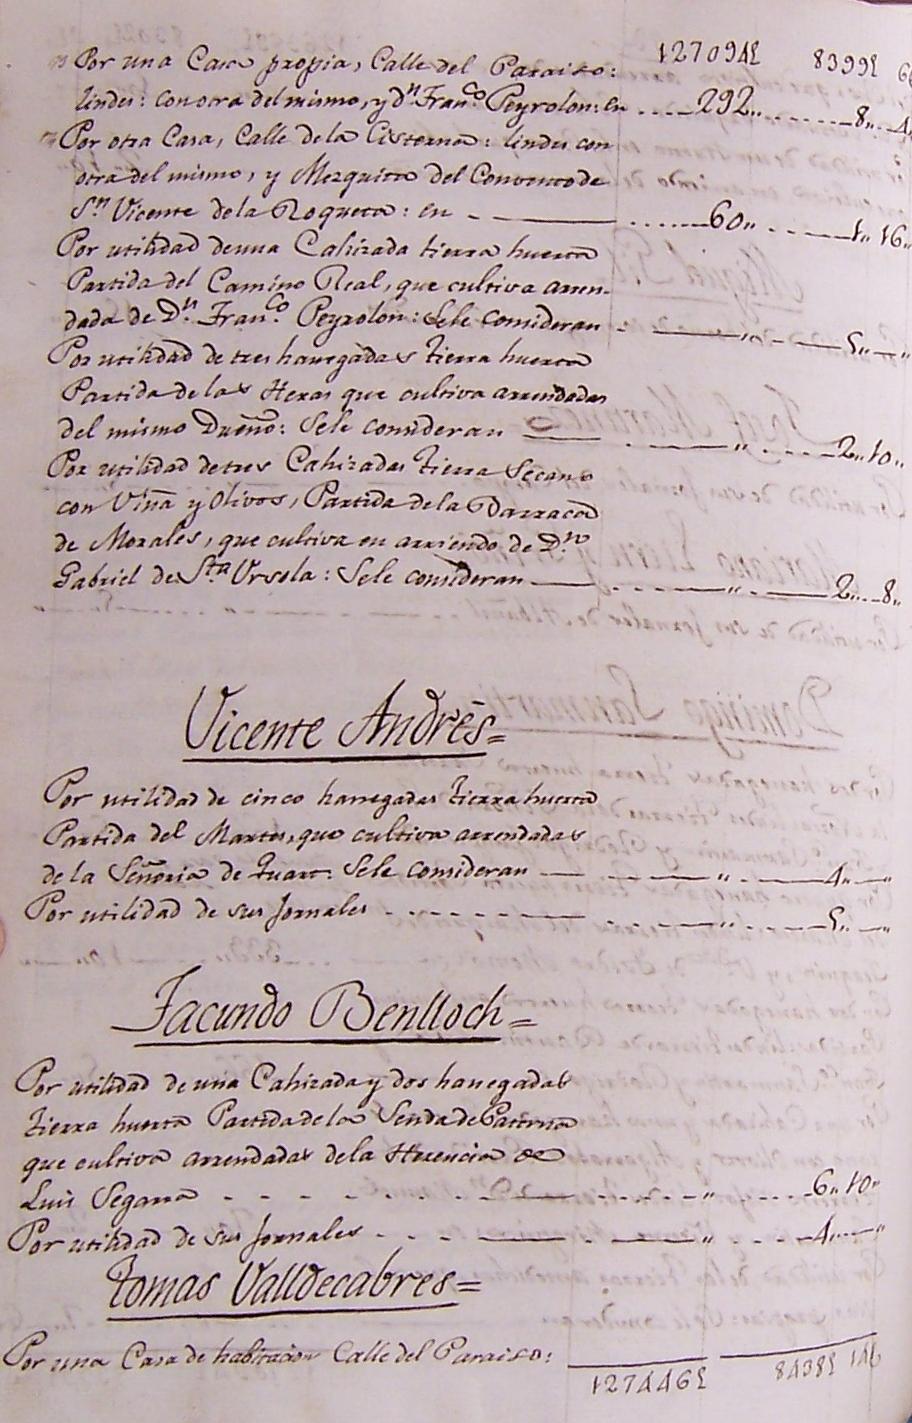 127094£ 8399£
Por una Casa propia, Calle del Paraiso:
lindes: con otra del mismo, y Dn. Franco. Peyrolon: en 292,, 8,, 4
Por otra Casa, Calle de la Cisterna: lindes con
otra del mismo, y Mezquita del Convento de
Sn. Vicente de la Roqueta: en 60,, 1,, 16,,
Por utilidad de una Cahizada tierra huerta
Partida del Camino Real, que cultiva arren-
dada de Dn. Franco. Peyrolon: Sele consideran ,, 5,, ,,
Por utilidad de tres hanegadas tierra huerta
Partida de las Heras que cultiva arrendadas
del mismo Dueño: Sele consideran ,, 2,, 10,,
Por utilidad de tres Cahizadas tierra Secano
con Viña y Olivos, Partida de la Barraca
de Morales, que cultiva en arriendo de Dn.
Gabriel de Sta. Ursola: Sele consideran ,, 2,, 8,,
Vicente Andrés=
Por utilidad de cinco hanegadas tierra huerta
Partida del que cultiva arrendadas
de la Señoria de Quart: Sele consideran ,, 4,, ,,
Por utilidad de sus Jornales ,, 5,, ,,
Facundo Benlloch=
Por utilidad de una Cahizada y dos hanegadas
tierra huerta Partida de la Senda de
que cultiva arrendadas de la Herencia de
Luis Segarra ,, 6,, 10,,
Por utilidad de sus Jornales ,, 4,, ,,
Tomas Valldecabres=
Por una Casa de habitacion Calle del Paraiso:
127446£ 8438£ 14